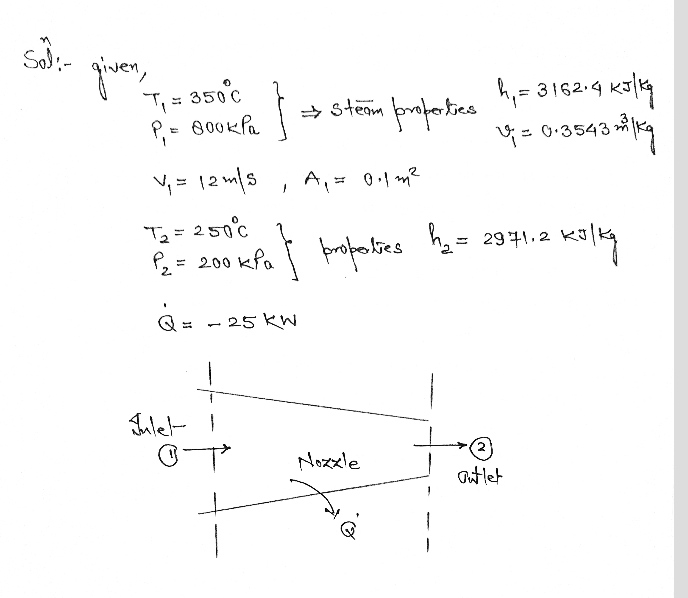 Solⁿ:- given,
T₁ = 350°C
P₁ = 800 kPa } ⇒ Steam properties h₁ = 3162.4 kJ/kg
v₁ = 0.3543 m³/kg
V₁ = 12 m/s , A₁ = 0.1 m²
T₂ = 250°C
P₂ = 200 kPa } properties h₂ = 2971.2 kJ/kg
Q̇ = - 25 KW
Inlet
① Nozzle ②
outlet
Q̇